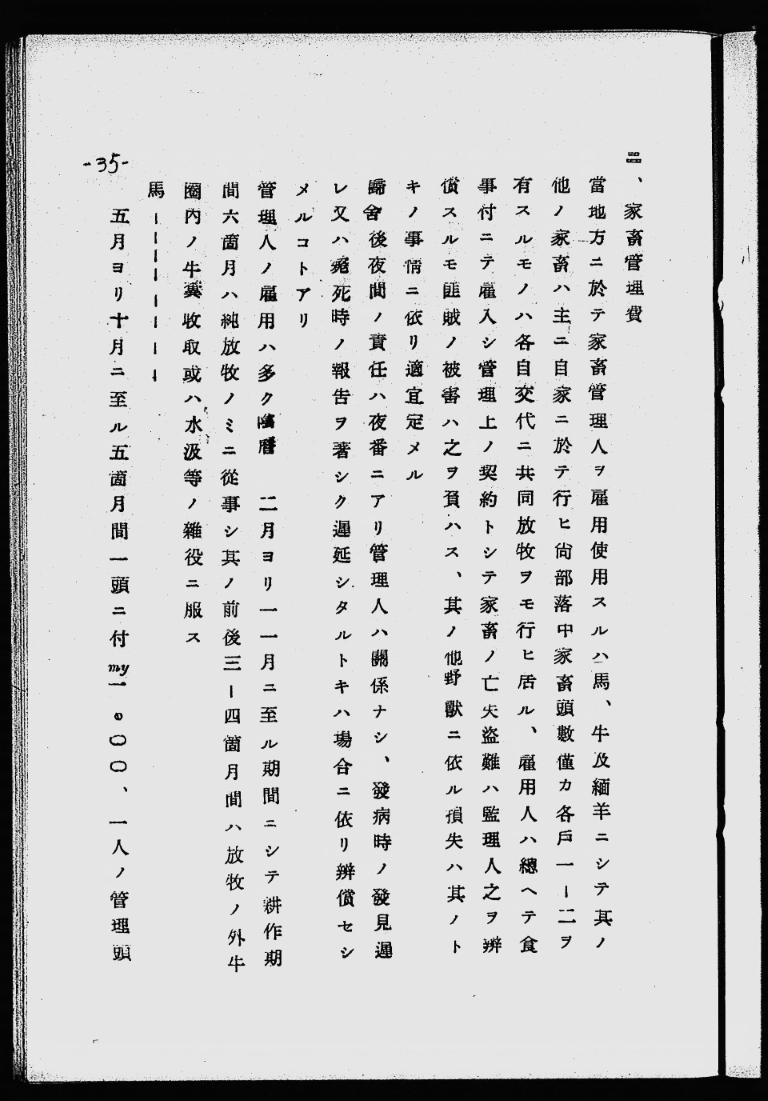 三、家畜管理費
當地方ニ於テ家畜管理人ヲ雇用使用スルハ馬、牛及緬羊ニシテ其ノ
他ノ家畜ハ主ニ自家ニ於テ行ヒ尙部落中家畜頭數僅カ各戶一ー二ヲ
有スルモノハ各自交代ニ共同放牧ヲモ行ヒ居ル、雇用人ハ總ヘテ食
事付ニテ雇入シ管理上ノ契約トシテ家畜ノ亡失盜難ハ監理人之ヲ辨
償スルモ匪賊ノ被害ハ之ヲ負ハス、其ノ他野獸ニ依ル損失ハ其ノト
キノ事情ニ依リ適宜定メル
歸舍後夜間ノ責任ハ夜番ニアリ管理人ハ關係ナシ、發病時ノ發見遲
レ又ハ斃死時ノ報告ヲ著シク遲延シタルトキハ場合ニ依リ辨償セシ
メルコトアリ
管理人ノ雇用ハ多ク陰曆 二月ヨリ一一月ニ至ル期間ニシテ耕作期
間六箇月ハ純放牧ノミニ從事シ其ノ前後三ー四箇月間ハ放牧ノ外牛
圈內ノ牛糞收取或ハ水汲等ノ雜役ニ服ス
馬ーーーーーーー
五月ヨリ十月ニ至ル五箇月間一頭ニ付my一。〇〇、一人ノ管理頭
-35-